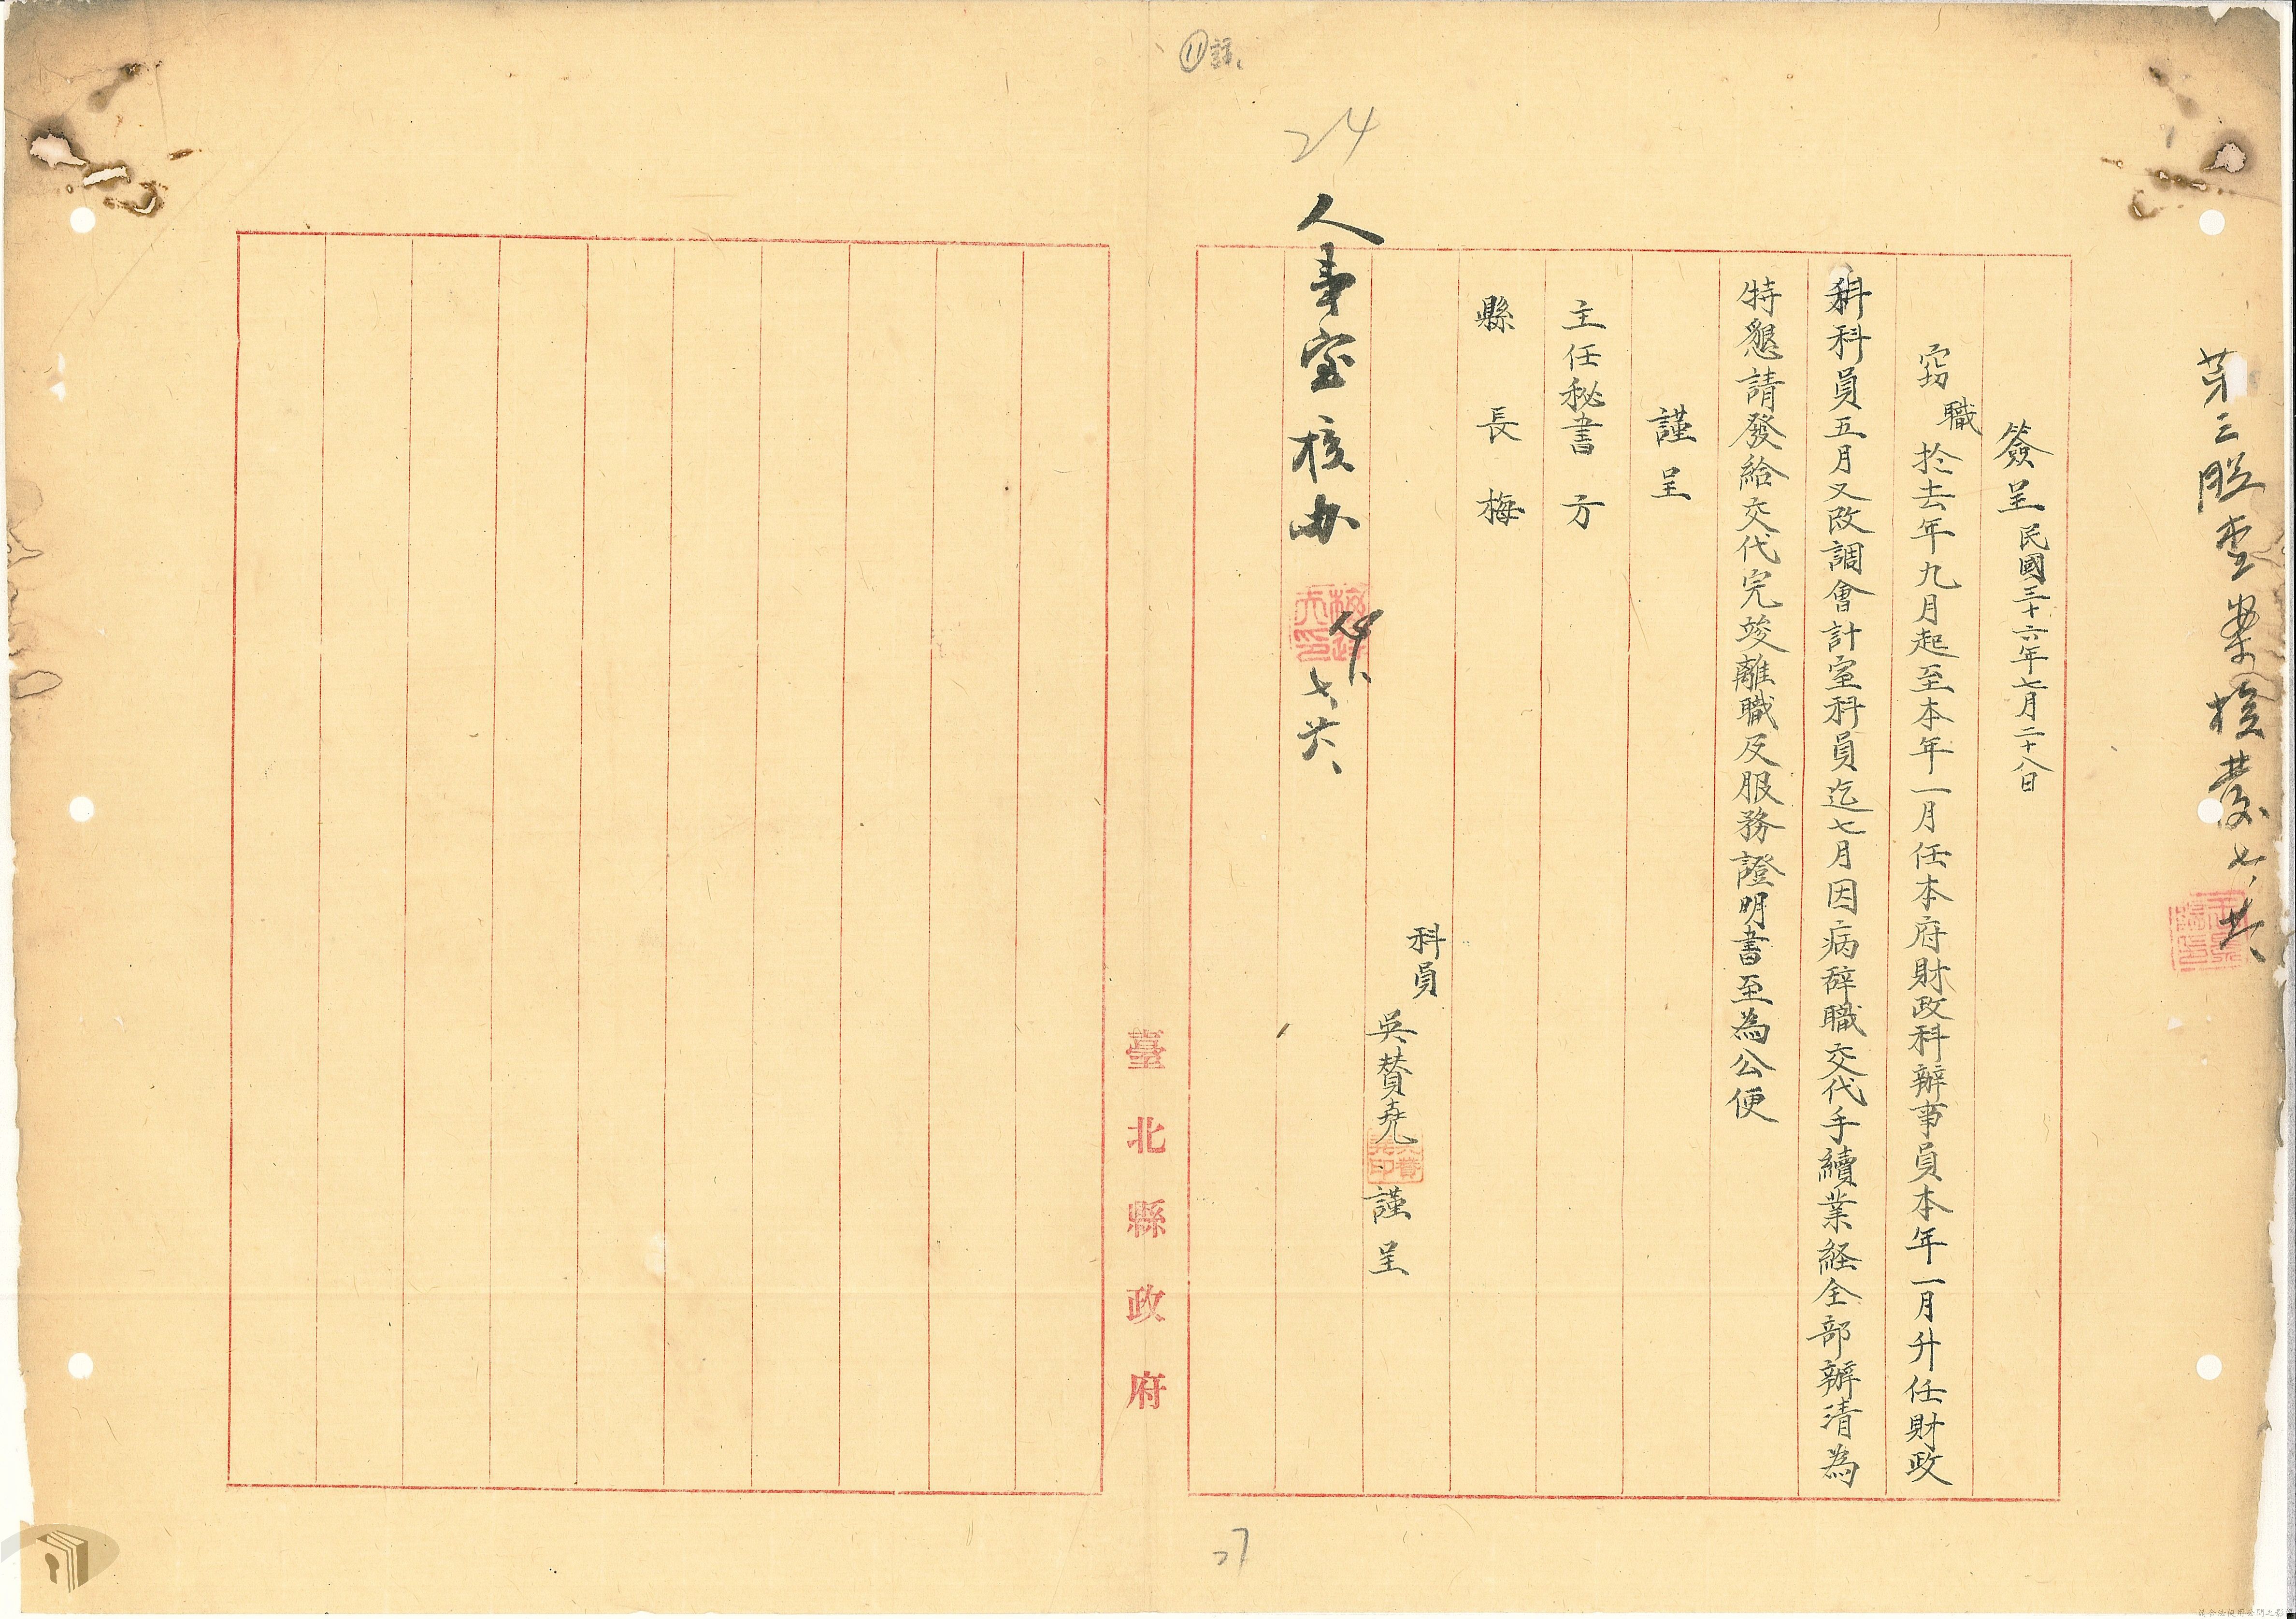 簽呈民國三十六年七月二十八日
窃職於去年九月起至本年一月任本府財政科辦事員本年一月升任財政
科科員五月又改調會計室科員迄七月因病辞職交代手續業経全部辦清為
特懇請發給交代完竣離職及服務證明書至為公便
謹呈
主任秘書方
縣長梅
科員
吳賛堯謹呈
人事室核办
七
24
27
臺北縣政府